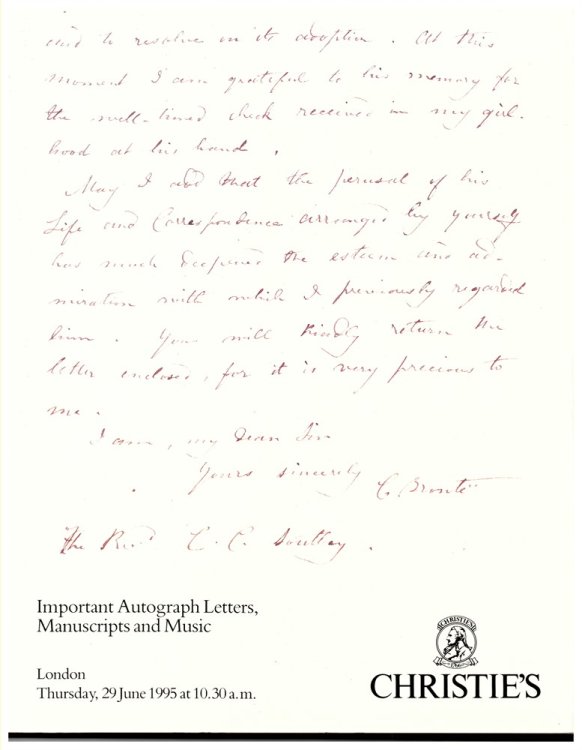 and to resolve on its adoption. At this
moment I am grateful to his memory for
the well-timed check received in my girl-
hood at his hand.
May I add that the perusal of his
Life and Correspondence arranged by yourself
has much deepened the esteem and ad-
miration with which I previously regarded
him. You will kindly return the
letter enclosed, for it is very precious to
me.
I am, my dear Sir
Yours sincerely
C. Brontë
The Revd. C. C. Southey.
Important Autograph Letters,
Manuscripts and Music
London
Thursday, 29 June 1995 at 10.30 a.m.
CHRISTIE'S
1766
CHRISTIE'S